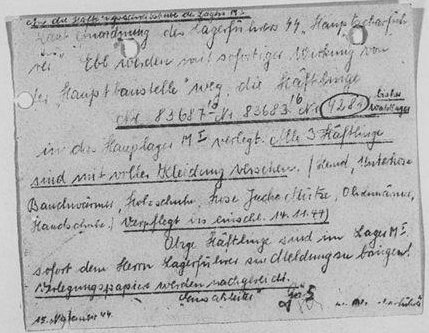 An die Häftlingsschreibstube des Lagers M I
Laut Anordnung des Lagerführers SS Hauptscharfüh
rer Ebl werden mit sofortiger Wirkung von
der "Hauptbaustelle" weg, die Häftlinge
Nr. 83687 Nr. 83683 Nr. 4284
in das Hauptlager M I verlegt. Alle 3 Häftlinge
sind mit voller Kleidung versehen. (Hemd, Unterhose
Bauchwärmer, Holzschuhe, Hose Jacke Mütze, Ohrenwärmer,
Handschuhe.) Verpflegt bis einschl. 14.11.44)
Obige Häftlinge sind im Lager M I
sofort dem Herrn Lagerführer zur Meldung zu bringen!
Verlegungspapiere werden nachgereicht.
15. November 44